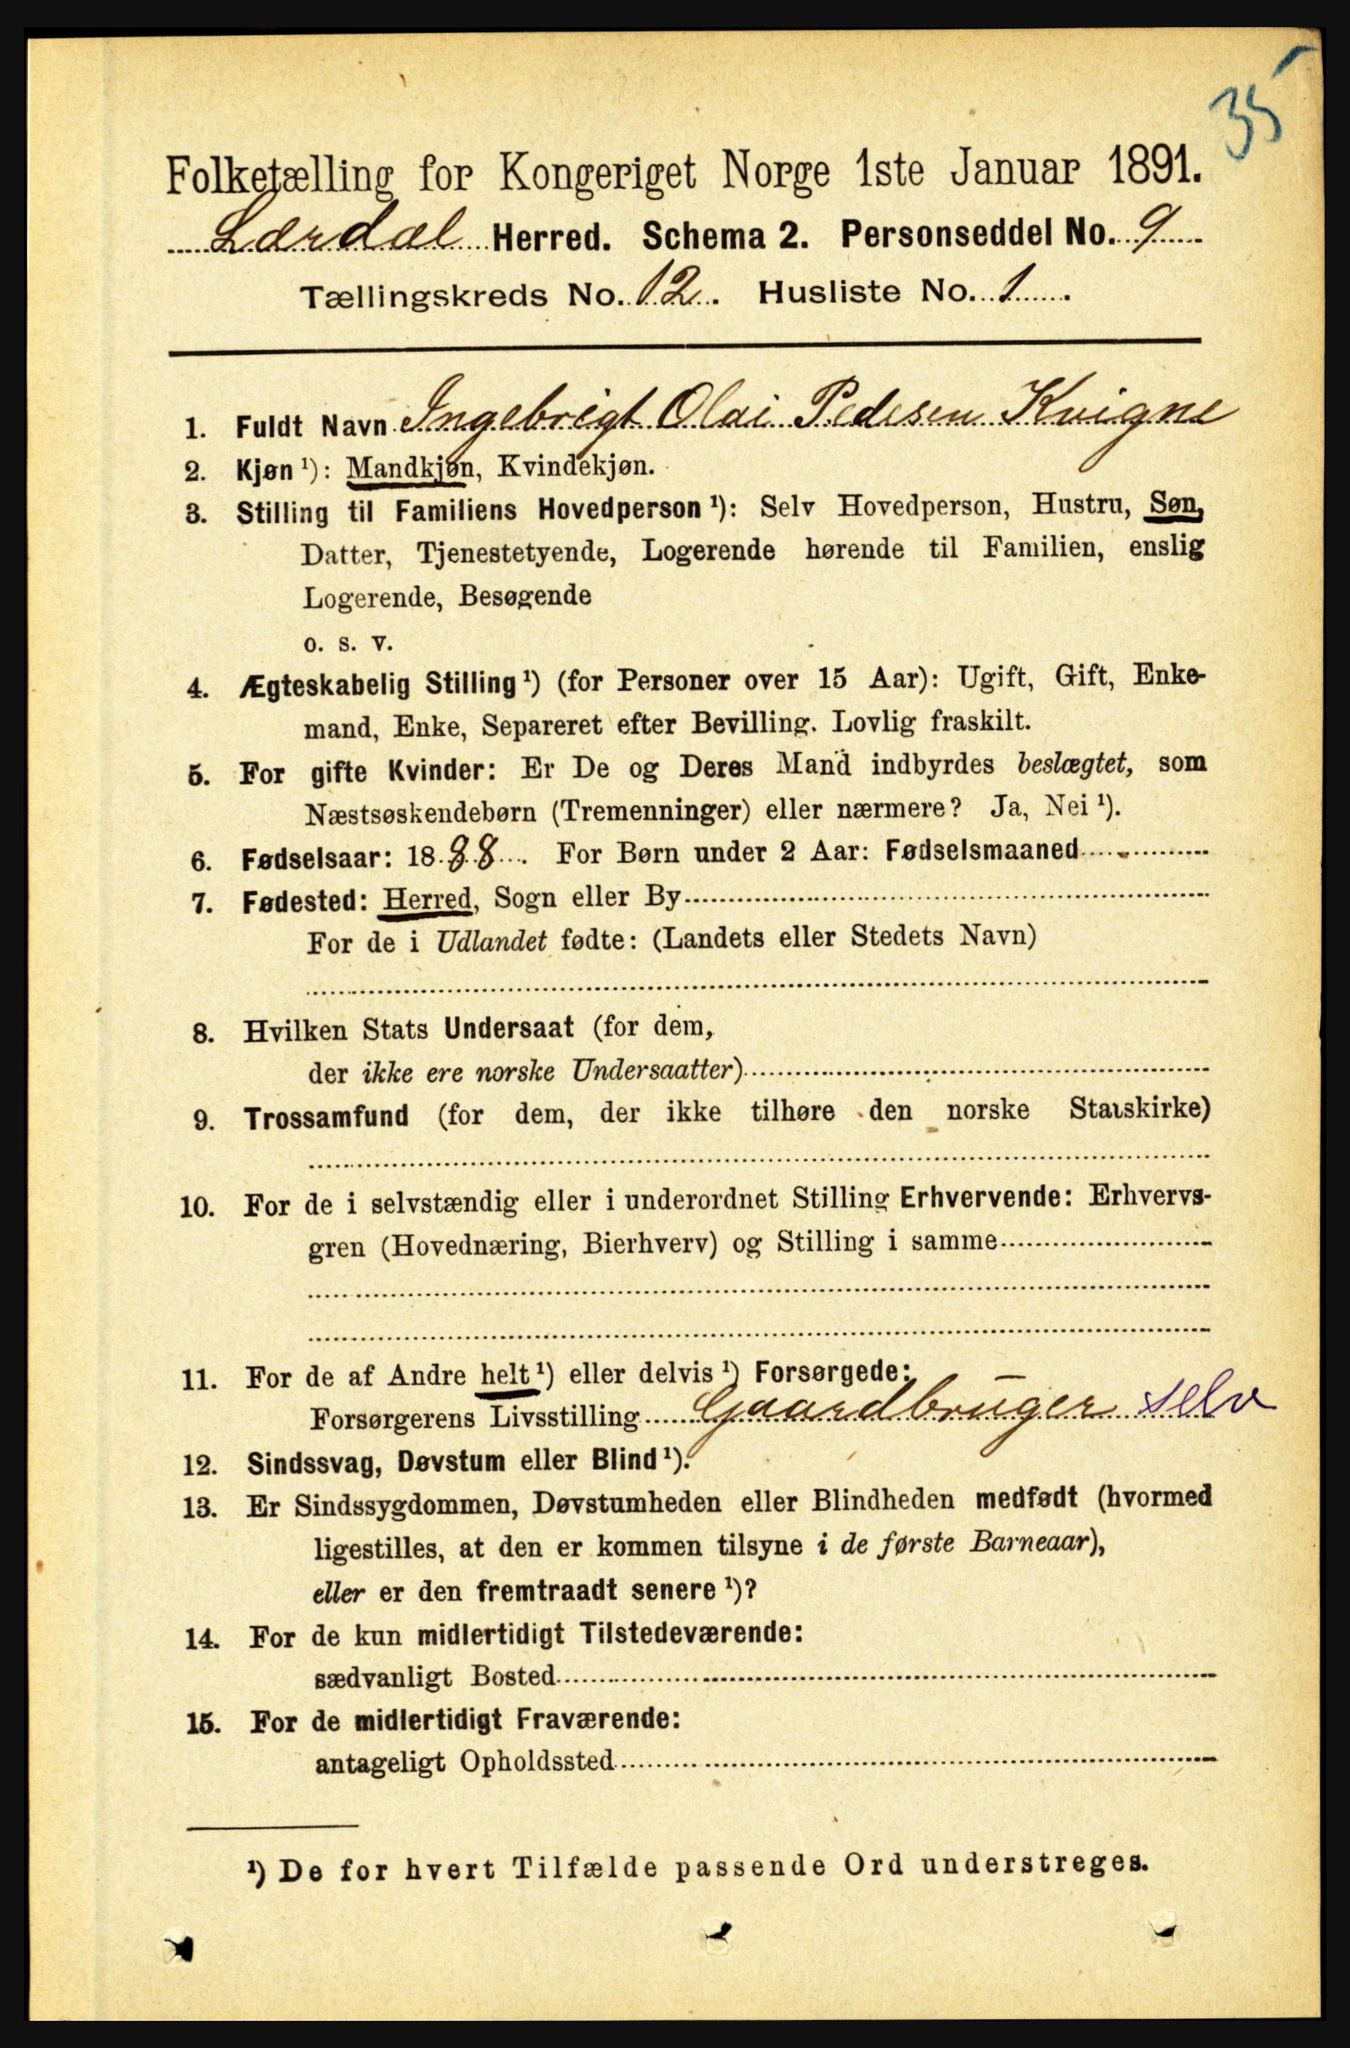 35
Folketælling for Kongeriget Norge 1ste Januar 1891.
Lærdal Herred. Schema 2. Personseddel No. 9
Tællingskreds No. 12. Husliste No. 1.
1. Fuldt Navn Ingebrigt Olai Pedesen Kvigne
2. Kjøn ¹): Mandkjøn, Kvindekjøn.
3. Stilling til Familiens Hovedperson ¹): Selv Hovedperson, Hustru, Søn,
Datter, Tjenestetyende, Logerende hørende til Familien, enslig
Logerende, Besøgende
o. s. v.
4. Ægteskabelig Stilling ¹) (for Personer over 15 Aar): Ugift, Gift, Enke-
mand, Enke, Separeret efter Bevilling. Lovlig fraskilt.
5. For gifte Kvinder: Er De og Deres Mand indbyrdes beslægtet, som
Næstsøskendebørn (Tremenninger) eller nærmere? Ja, Nei ¹).
6. Fødselsaar: 1888. For Børn under 2 Aar: Fødselsmaaned
7. Fødested: Herred, Sogn eller By
For de i Udlandet fødte: (Landets eller Stedets Navn)
8. Hvilken Stats Undersaat (for dem,
der ikke ere norske Undersaatter)
9. Trossamfund (for dem, der ikke tilhøre den norske Statskirke)
10. For de i selvstændig eller i underordnet Stilling Erhvervende: Erhvervs-
gren (Hovednæring, Bierhverv) og Stilling i samme
11. For de af Andre helt ¹) eller delvis ¹) Forsørgede:
Forsørgerens Livsstilling Gaardbruger selv
12. Sindssvag, Døvstum eller Blind ¹).
13. Er Sindssygdommen, Døvstumheden eller Blindheden medfødt (hvormed
ligestilles, at den er kommen tilsyne i de første Barneaar),
eller er den fremtraadt senere ¹)?
14. For de kun midlertidigt Tilstedeværende:
sædvanligt Bosted
15. For de midlertidigt Fraværende:
antageligt Opholdssted
¹) De for hvert Tilfælde passende Ord understreges.